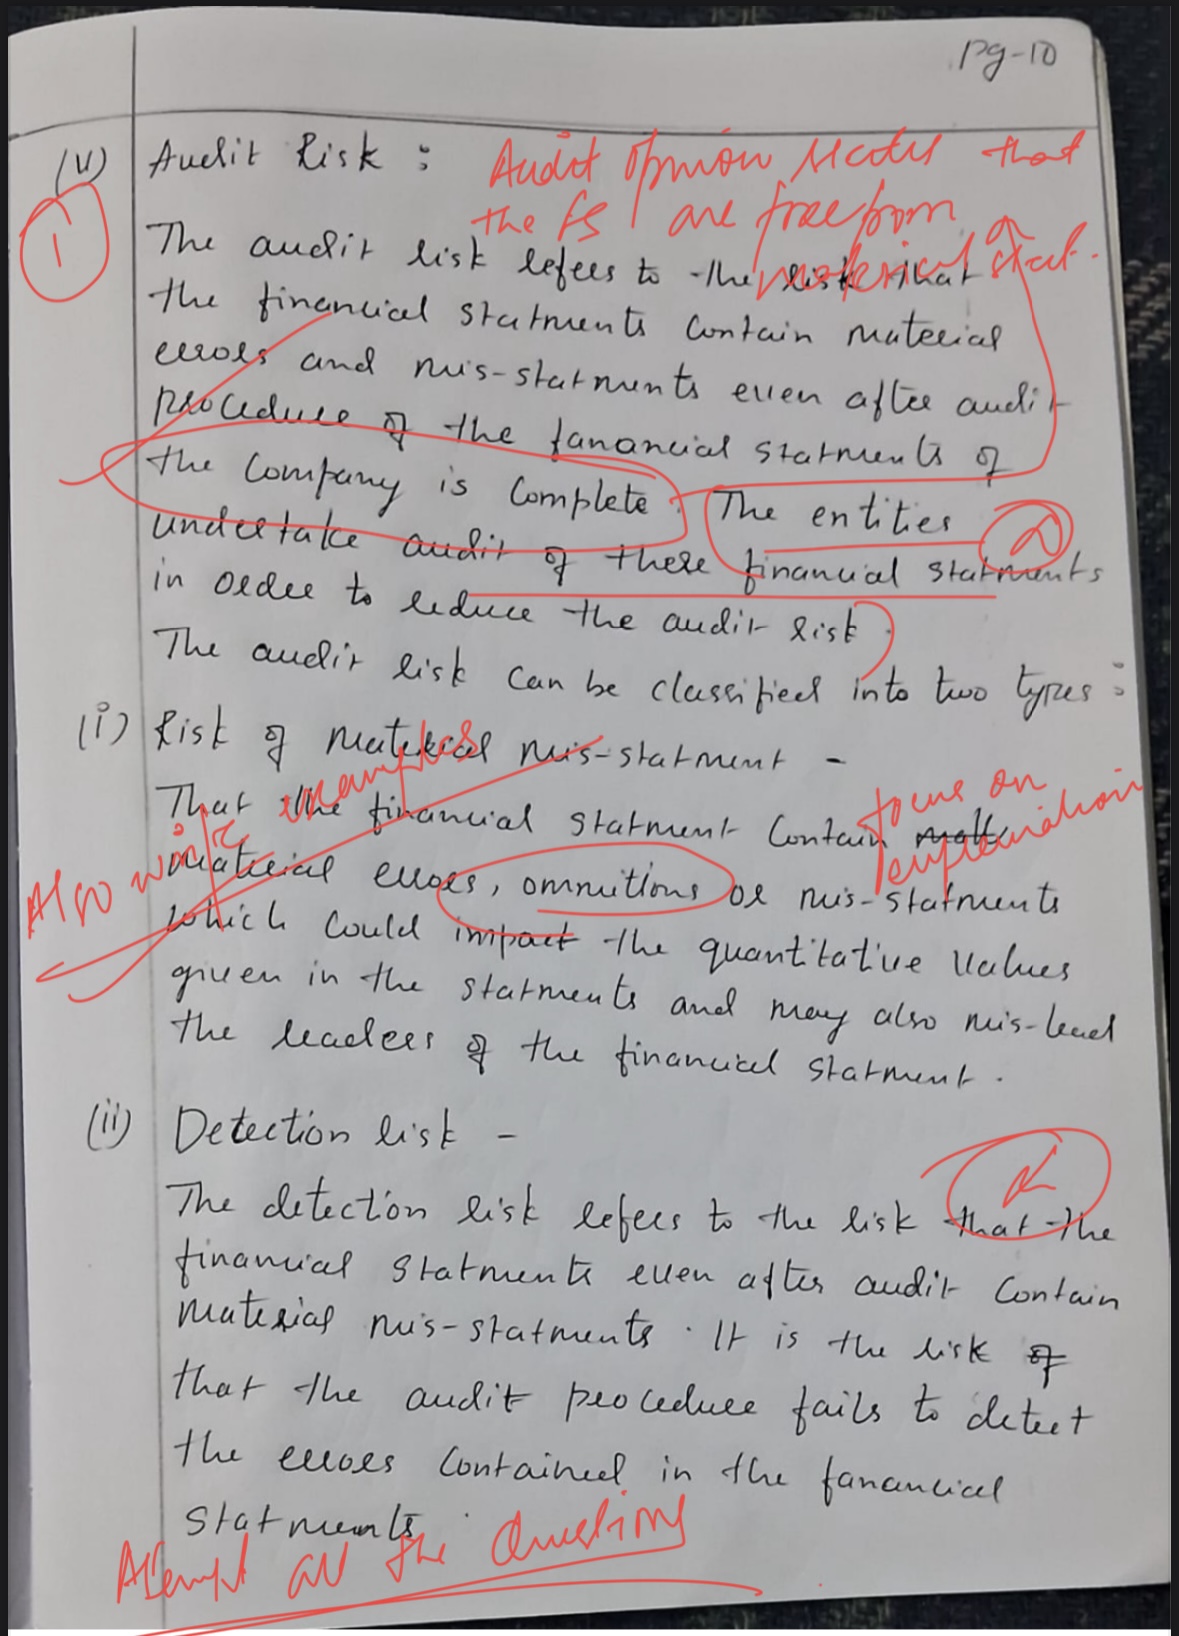 pg-10
(v) Audit Risk :
Audit opinion states that
the FS are free from
material stat.
1
The audit risk refers to the risk that
the financial statments contain material
errors and mis-statments even after audit
procedure of the fanancial statments of
the company is complete. The entities
undertake audit of these financial statments
in order to reduce the audit risk.
The audit risk can be classified into two types:
(i) Risk of material mis-statment -
That the financial statment contain
material errors, ommitions or mis-statments
which could impact the quantitative values
given in the statments and may also mis-lead
the readers of the financial statment.
Also write examples
focus on
explanation
(ii) Detection risk -
The detection risk refers to the risk that the
financial statments even after audit contain
material mis-statments. It is the risk of
that the audit procedure fails to detect
the errors contained in the fanancial
statments.
Attempt all the Questions